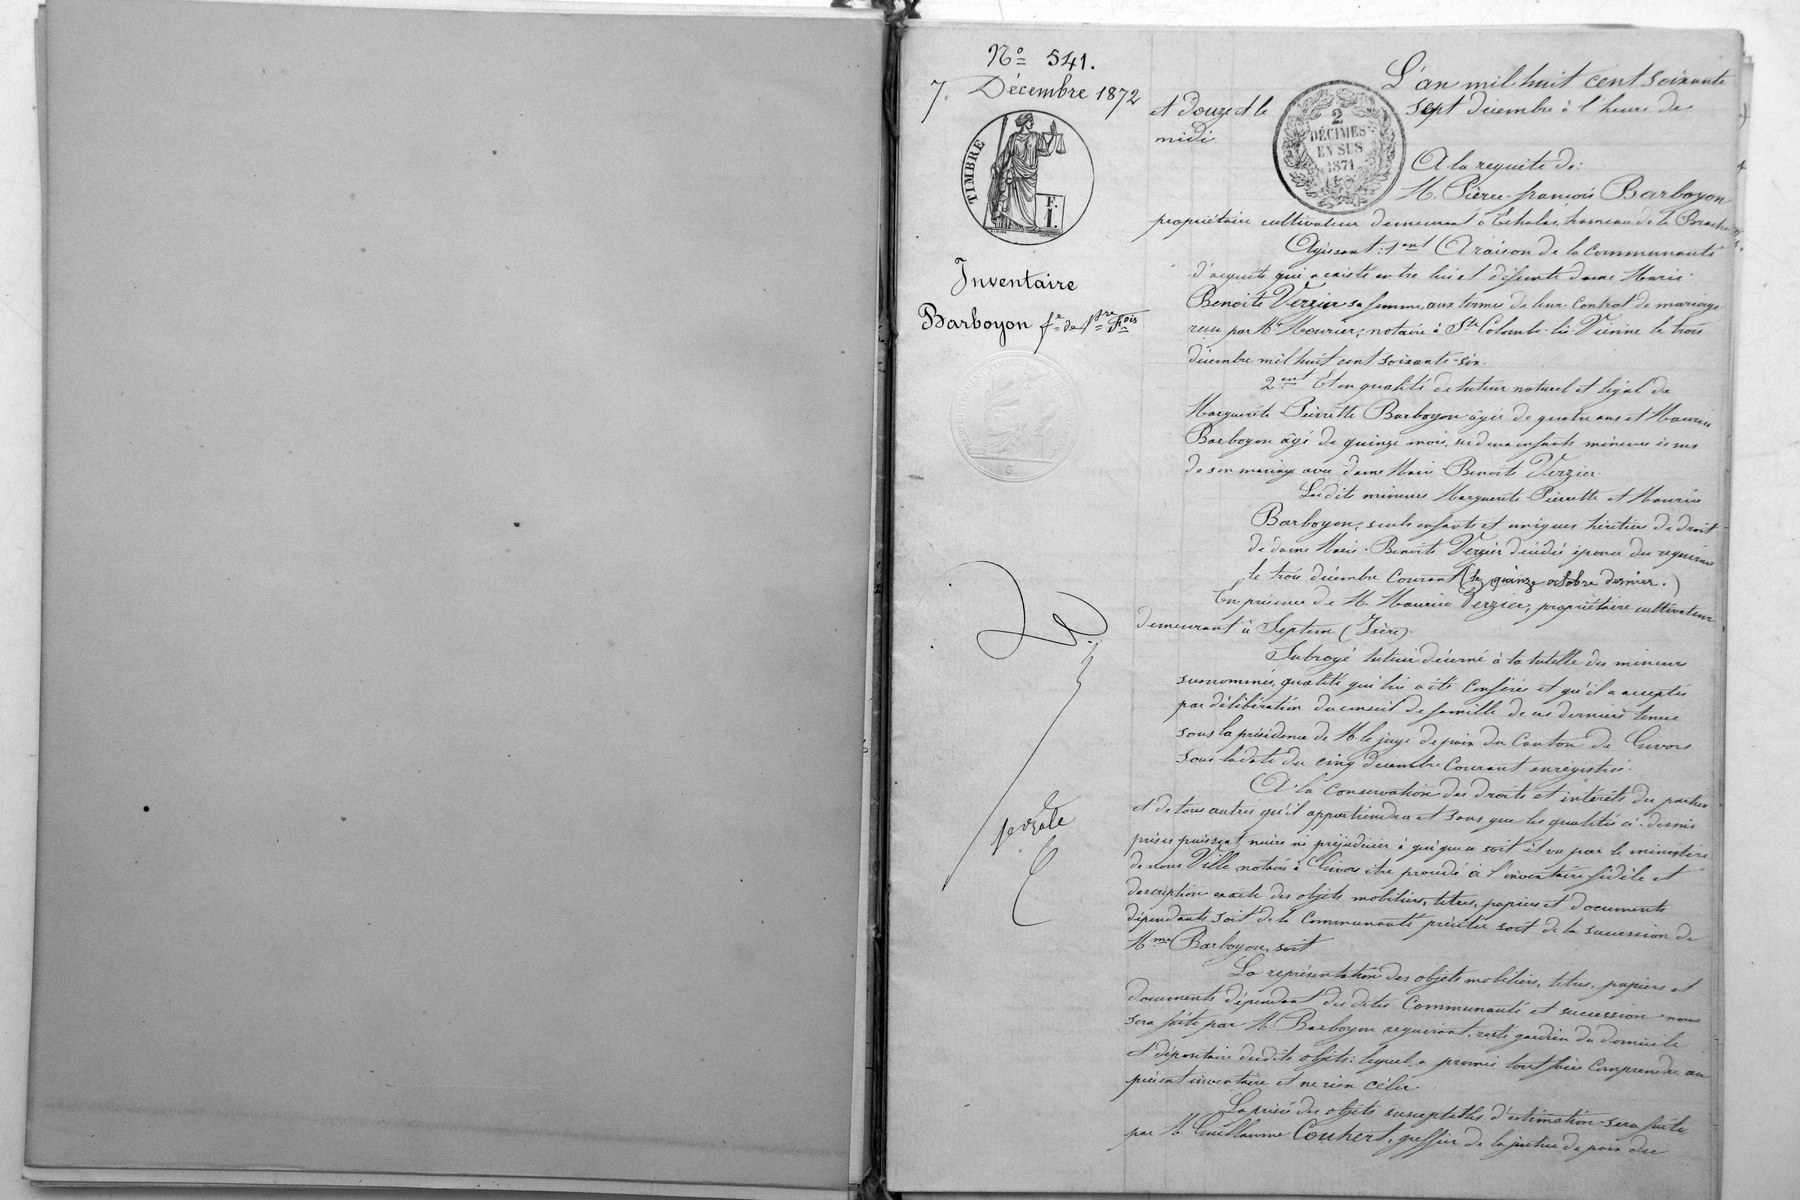 N° 541.
7. Décembre 1872
TIMBRE
F.
1.
Inventaire
Barboyon fe de Pre Fois
L'an mil huit cent soixante
et douze et le sept décembre à l'heure de
midi
2
DÉCIMES
EN SUS
1871
A la requête de:
M. Pierre-françois Barboyon
propriétaire cultivateur demeurant à Echalas, hameau de la
Agissant: 1ent A raison de la communauté
d'acquets qui a existé entre lui et défunte dame Marie
Benoite Verzier sa femme, aux termes de leur contrat de mariage
reçu par Me Mourier, notaire à Ste Colombe-lès-Vienne le trois
décembre mil huit cent soixante-six.
2ent Et en qualité de tuteur naturel et légal de
Marguerite-Pierrette Barboyon âgée de quatre ans et Maurice
Barboyon âgé de quinze mois, ses deux enfants mineurs issus
de son mariage avec dame Marie-Benoite Verzier.
Lesdits mineurs Marguerite-Pierrette et Maurice
Barboyon, seuls enfants et uniques héritiers de droit
de dame Marie-Benoite Verzier décédée épouse du requérant
le trois décembre courant (le quinze octobre dernier.)
En présence de M. Maurice Verzier, propriétaire cultivateur
demeurant à Septeme (Isère).
Subrogé tuteur décerné à la tutelle des mineurs
surnommés, qualité qui lui a été conférée et qu'il a acceptée
par délibération du conseil de famille de ces derniers tenue
sous la présidence de M. le juge de paix du Canton de Givors
sous la date du cinq décembre courant enregistrée.
A la conservation des droits et intérêts des parties
et de tous autres qu'il appartiendra et sans que les qualités ci-dessus
prises puissent nuire ni préjudicier à qui que ce soit il va par le ministère
de nous Ville, notaire à Givors être procédé à l'inventaire fidèle et
description exacte des objets mobiliers, titres, papiers et documents
dépendants soit de la communauté précitée soit de la succession de
Mme Barboyon, soit
La représentation des objets mobiliers, titres, papiers et
documents dépendant des dites communauté et succession nous
sera faite par M. Barboyon, requérant, resté gardien du domicile
et dépositaire desdits objets: lequel a promis tout faire comprendre au
présent inventaire et ne rien céler.
La prisée des objets susceptibles d'estimation sera faite
par M. Guillaume Couhert, greffier de la justice de paix du